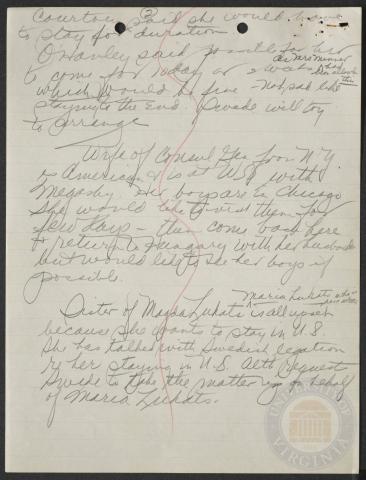 said she would have
to stay for duration
said possible for her
to come for 1 day or
which would be fine - Not, sad like
staying to the End. Swede will try
to arrange
Wife of Consul Gen. from N.Y.
is American & is at WSS with
Her boys are in Chicago
She would like to visit them for
few days - then come back here
& return to Hungary with her husband
but would like to see her boys if
possible.
Maria Lukats
Sister of Magda Lukats is all upset
because she wants to stay in U.S.
She has talked with Swedish legation
re her staying in U.S. request
Swede to take the matter up on behalf
of Maria Lukats.
UNIVERSITY OF
VIRGINIA